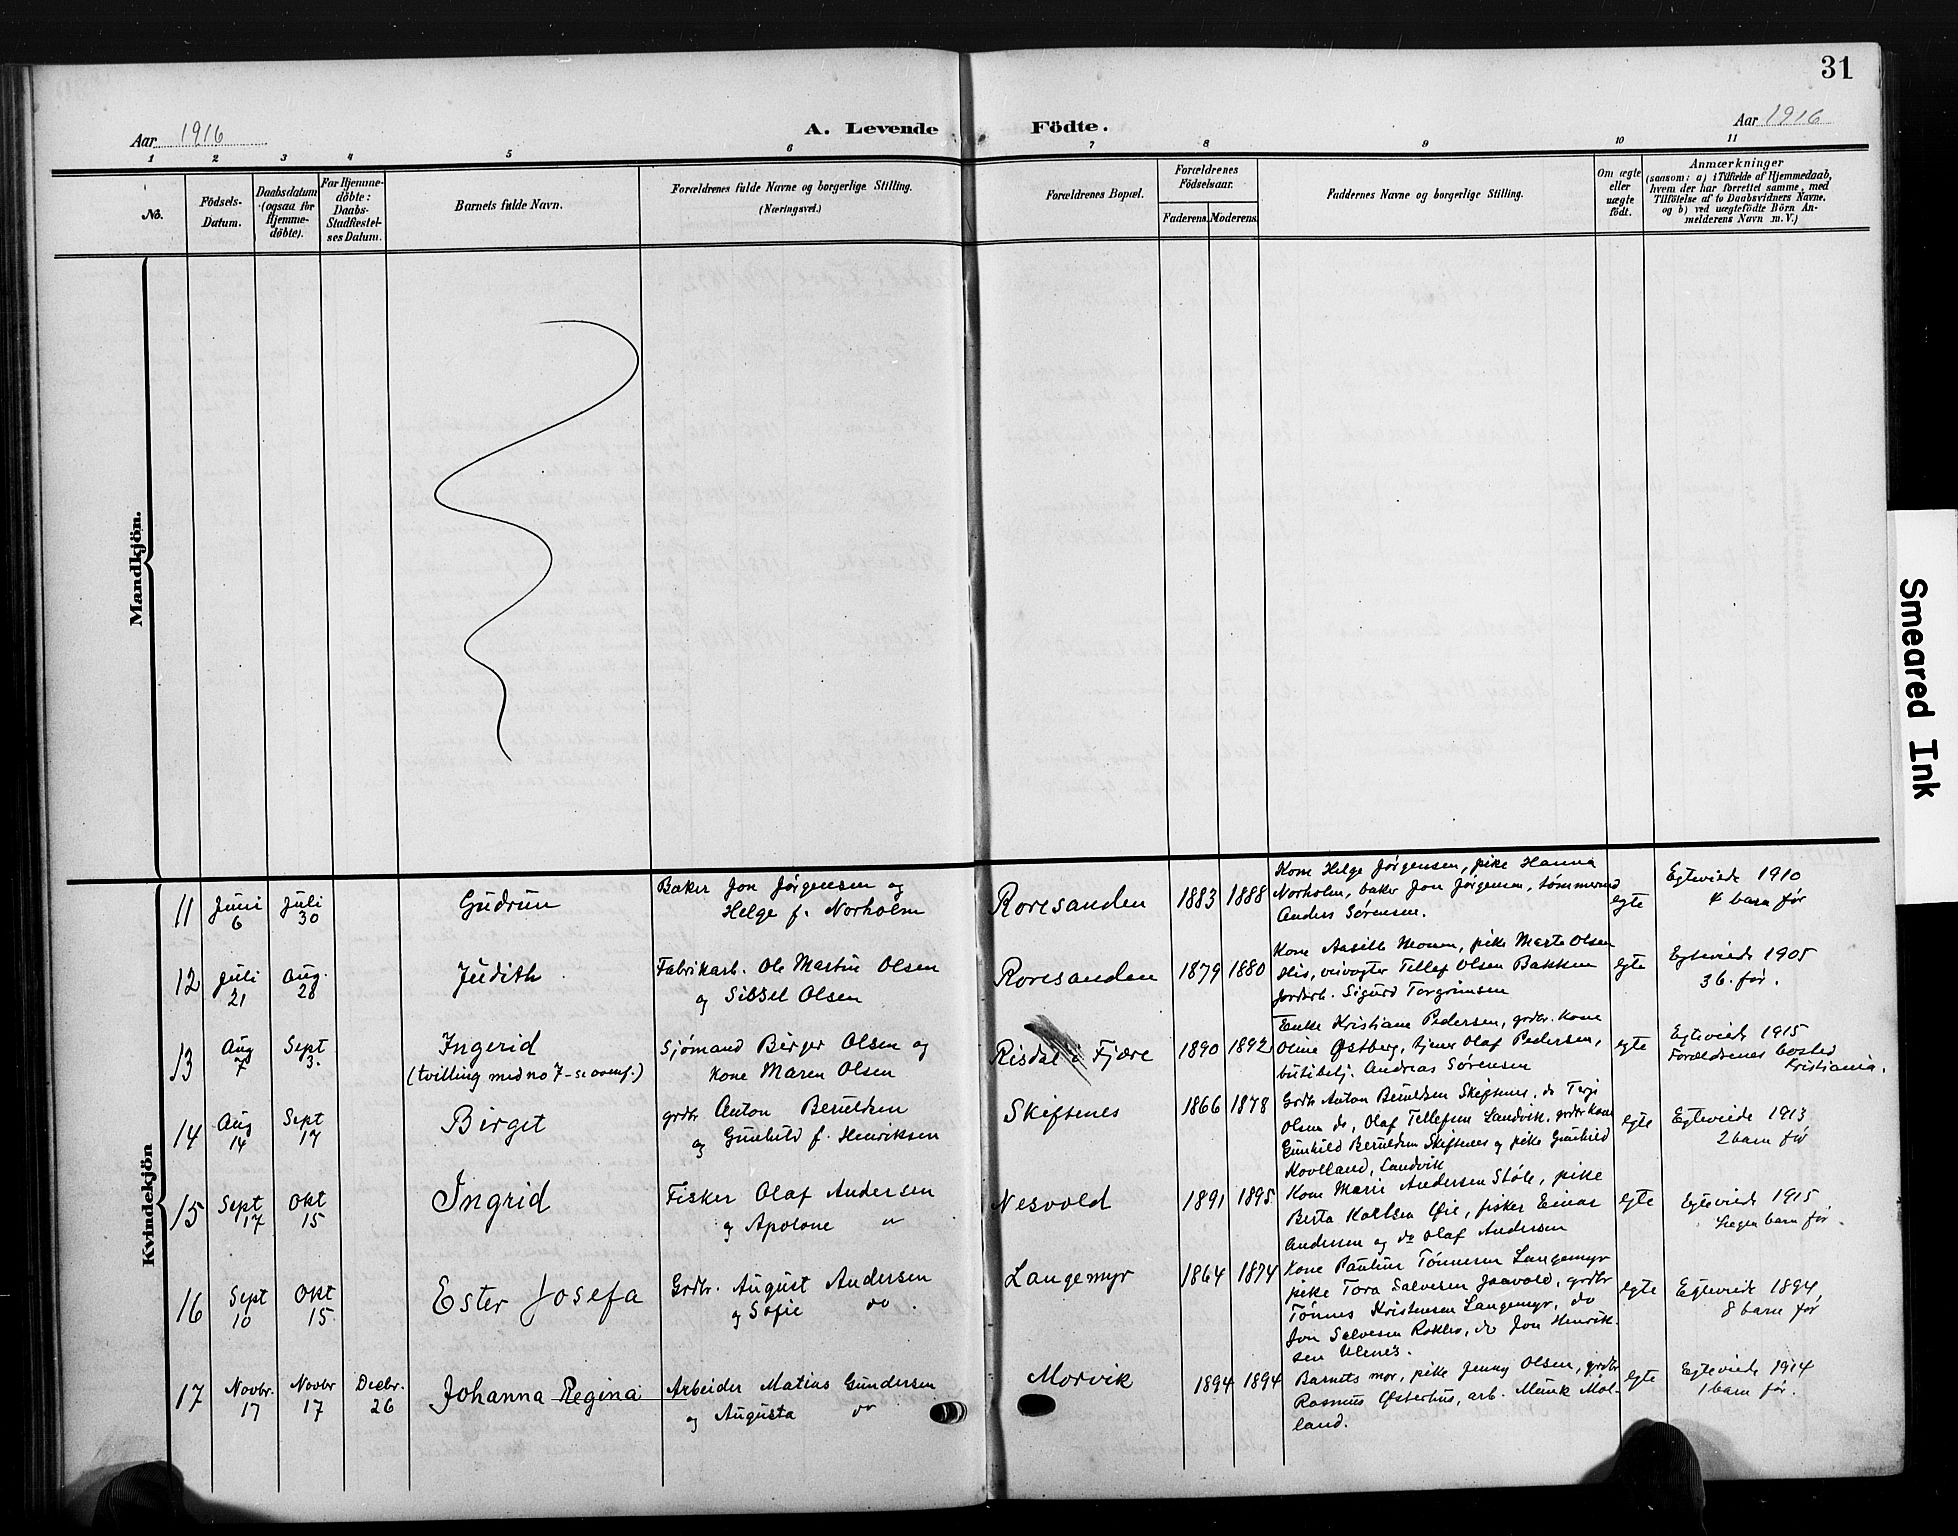 31
Aar 1916
A. Levende Födte.
Aar 1916
1 2 3 4 5 6 7 8 9 10 11
No.
Födsels-Datum.
Daabsdatum (ogsaa for Hjemme-döbte).
For Hjemme-döbte: Daabs-Stadfæstel-ses Datum.
Barnets fulde Navn.
Forældrenes fulde Navne og borgerlige Stilling.
(Næringsvei.)
Forældrenes Bopæl.
Forældrenes Födselsaar.
Faderens. Moderens.
Faddernes Navne og borgerlige Stilling.
Om ægte eller uægte födt.
Anmærkninger
(saasom: a) i Tilfælde af Hjemmedaab, hvem der har forrettet samme, med Tilföielse af to Daabsvidners Navne, og b) ved uægtefödte Börn An-melderens Navn m. V.)
Mandkjön.
Kvindekjön
11 Juni 6 Juli 30 Gudrun
Baker Jon Jørgensen og
Helge f. Norholm
Roresanden 1883 1888
Kone Helge Jørgensen, pike Hanna
Norholm, baker Jon Jørgensen, tømmermd
Anders Sørensen.
egte
Egteviede 1910
4 barn før
12 Juli 21 Aug. 28 Judith
Fabrikarb. Ole Martin Olsen
og Sibsel Olsen
Roresanden 1879 1880
Kone Aasille Monen, pike Marte Olsen
His, veivogter Tellef Olsen Bakken
jordarb. Sigurd Torgrimsen
egte
Egteviede 1905
3 b. før.
13 Aug 7 Sept 3. Ingerid
(tvilling med no 7 - se ovenf.)
Sjømand Birger Olsen og
Kone Maren Olsen
Risdal i Fjære 1890 1892
Enke Kristiane Pedersen, grdbr. kone
Oline Østberg, tjener Olaf Pedersen,
butibetj. Andreas Sørensen
egte
Egteviede 1915
Forældrenes bosted
Kristiania.
14 Aug 14 Sept 17 Birget
grdbr Anton Berulden
og Gunhild f. Henriksen
Skiftenes 1866 1878
Grdb Anton Beruldsen Skiftenes, do Terje
Olsen do, Olaf Tellefsen Landvik, grdbr kone
Gunhild Beruldsen Skiftenes og pike Gunhild
Kovland, Landvik
egte
Egteviede 1913
2 barn før
15 Sept 17 Okt 15 Ingrid
Fisker Olaf Andersen
og Apolone "
Nesvold 1891 1895
Kone Marie Andersen Støle, pike
Berta Karlsen Øie, fisker Einar
Andersen og do Olaf Andersen
egte
Egteviede 1915
Ingen barn før.
16 Sept 10 Okt 15. Ester Josefa
Grdbr. August Andersen
og Sofie do.
Langemyr 1864 1874
Kone Pauline Tønnesen Langemyr
pike Tora Salvesen Jaavold, grdbr
Tønnes Kristensen Langemyr, do
Jon Salvesen , do Jon Henrik-
sen Ulenes.
egte
Egteviede 1894,
8 barn før
17 Novbr. 17 Novbr 17 Decbr. 26 Johanna Regina
Arbeider Matias Gundersen
og Augusta do
Morvik 1894 1894
Barnets mor, pike Jenny Olsen, grdbr
Rasmus Østerhus, arb. Møl-
land.
egte
Egteviede 1914
1 barn før.
Smeared Ink